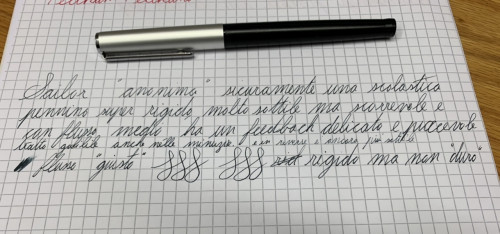 Pelikan Pelikan
Sailor "anonima" sicuramente una scolastica
pennino super rigido, molto sottile ma scorrevole e
con flusso medio ha un feedback delicato e piacevole
tratto gestibile anche nelle minuzie. e in reverse è ancora più sottile
flusso "giusto" rigido ma non "duro"